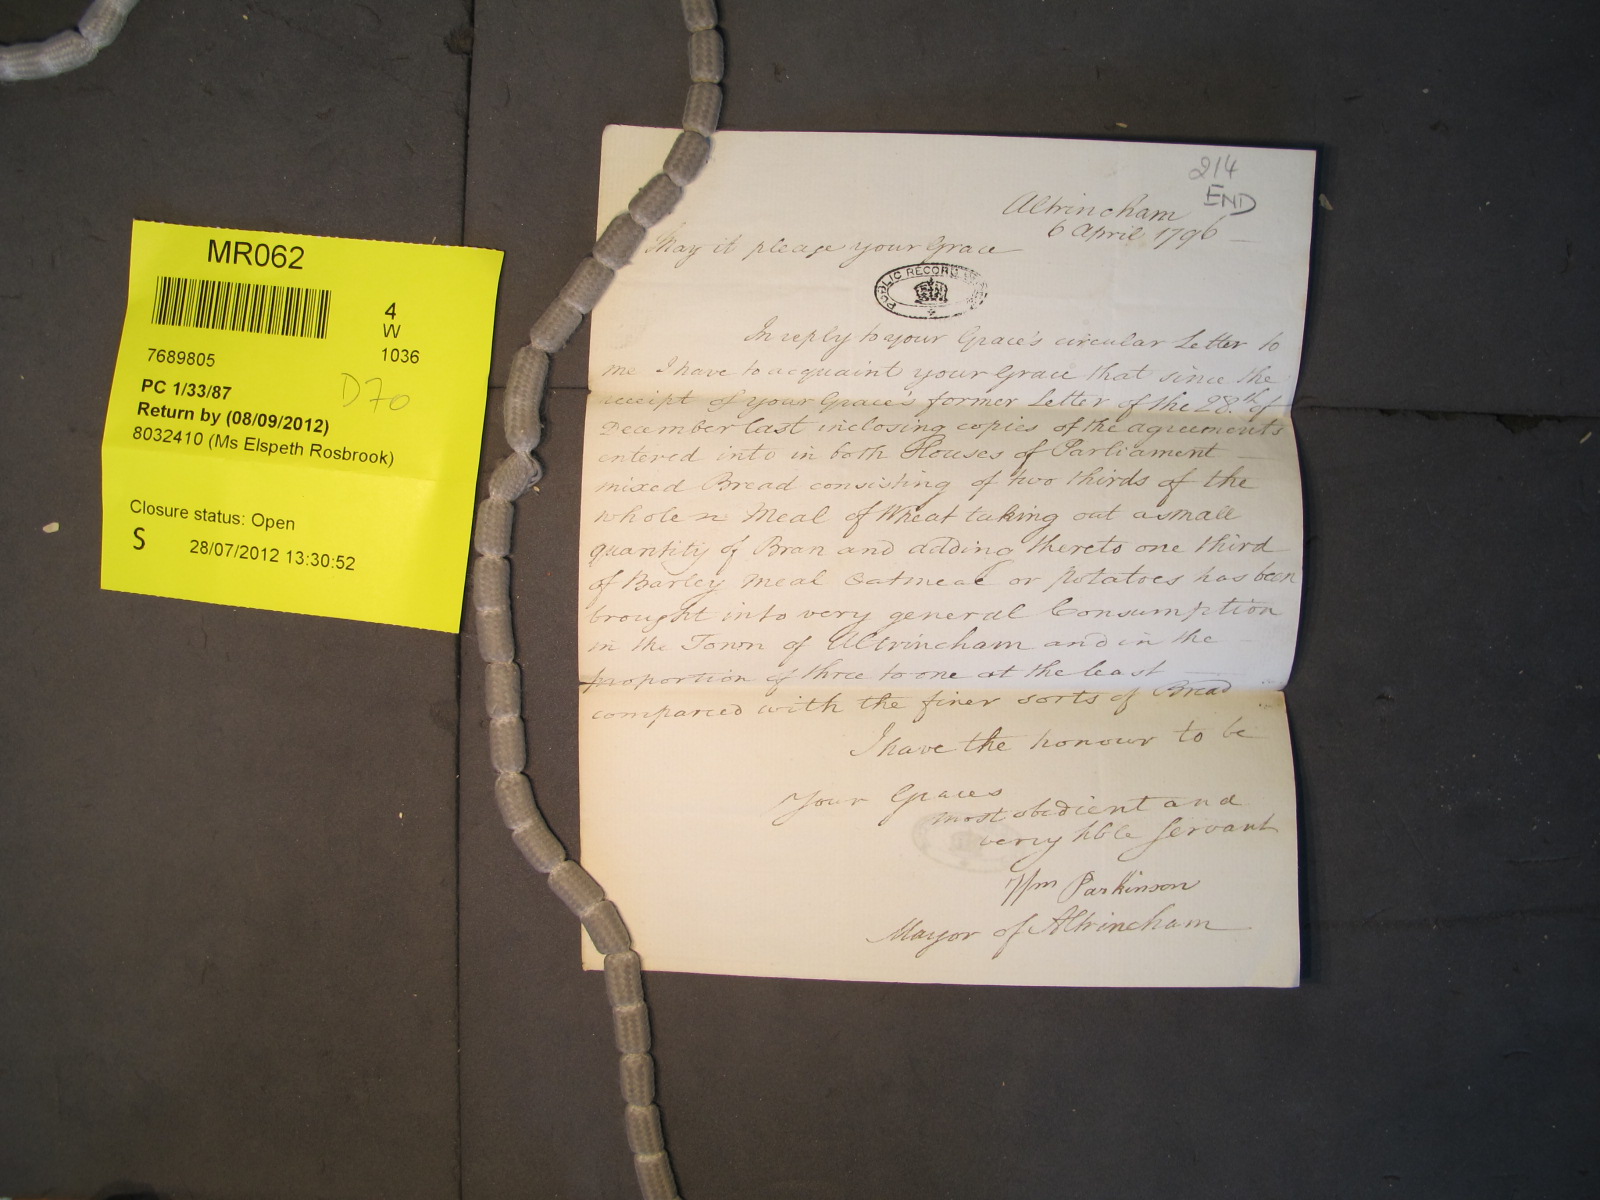 MR062
4
W
1036
7689805
PC 1/33/87
D70
Return by (08/09/2012)
8032410 (Ms Elspeth Rosbrook)
Closure status: Open
S
28/07/2012 13:30:52
214
END
Altrincham
6 April 1796
May it please your Grace
PUBLIC RECORD
In reply to your Grace's circular Letter to
me I have to acquaint your Grace that since the
receipt of your Grace's former Letter of the 28th of
December last inclosing copies of the agreements
entered into in both Houses of Parliament
mixed Bread consisting of two thirds of the
whole Meal of Wheat taking out a small
quantity of Bran and adding thereto one third
of Barley Meal Oatmeal or Potatoes has been
brought into very general Consumption
in the Town of Altrincham and in the
proportion of three to one at the least
compared with the finer sorts of Bread
I have the honour to be
Your Graces
most obedient and
very hble Servant
Wm Parkinson
Mayor of Altrincham